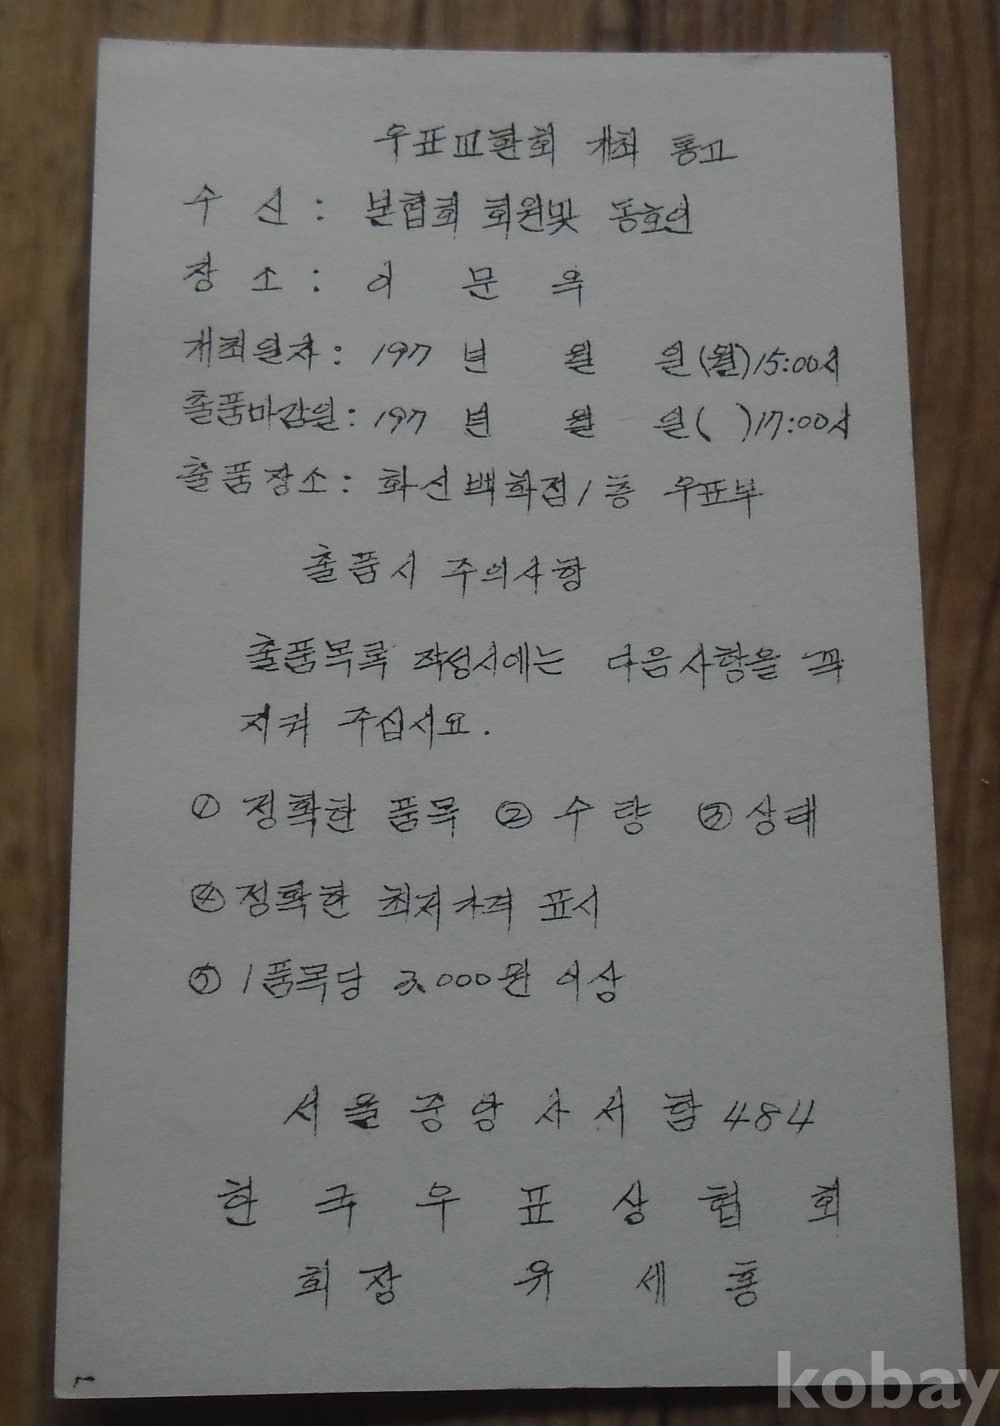 우표교환회 개최 통고
수 신 : 본협회 회원및 동호인
장 소 : 이 문 옥
개최일자 : 197 년 월 일(월)15:00시
출품마감일 : 197 년 월 일( )17:00시
출품장소 : 화신백화점 1층 우표부
출품시 주의사항
출품목록 작성시에는 다음사항을 꼭
지켜 주십시요.
① 정확한 품목 ② 수 량 ③ 상태
④ 정확한 최저가격 표시
⑤ 1품목당 3,000원 이상
서 울 중 앙 사 서 함 484
한 국 우 표 상 협 회
회 장 유 세 홍
kobay